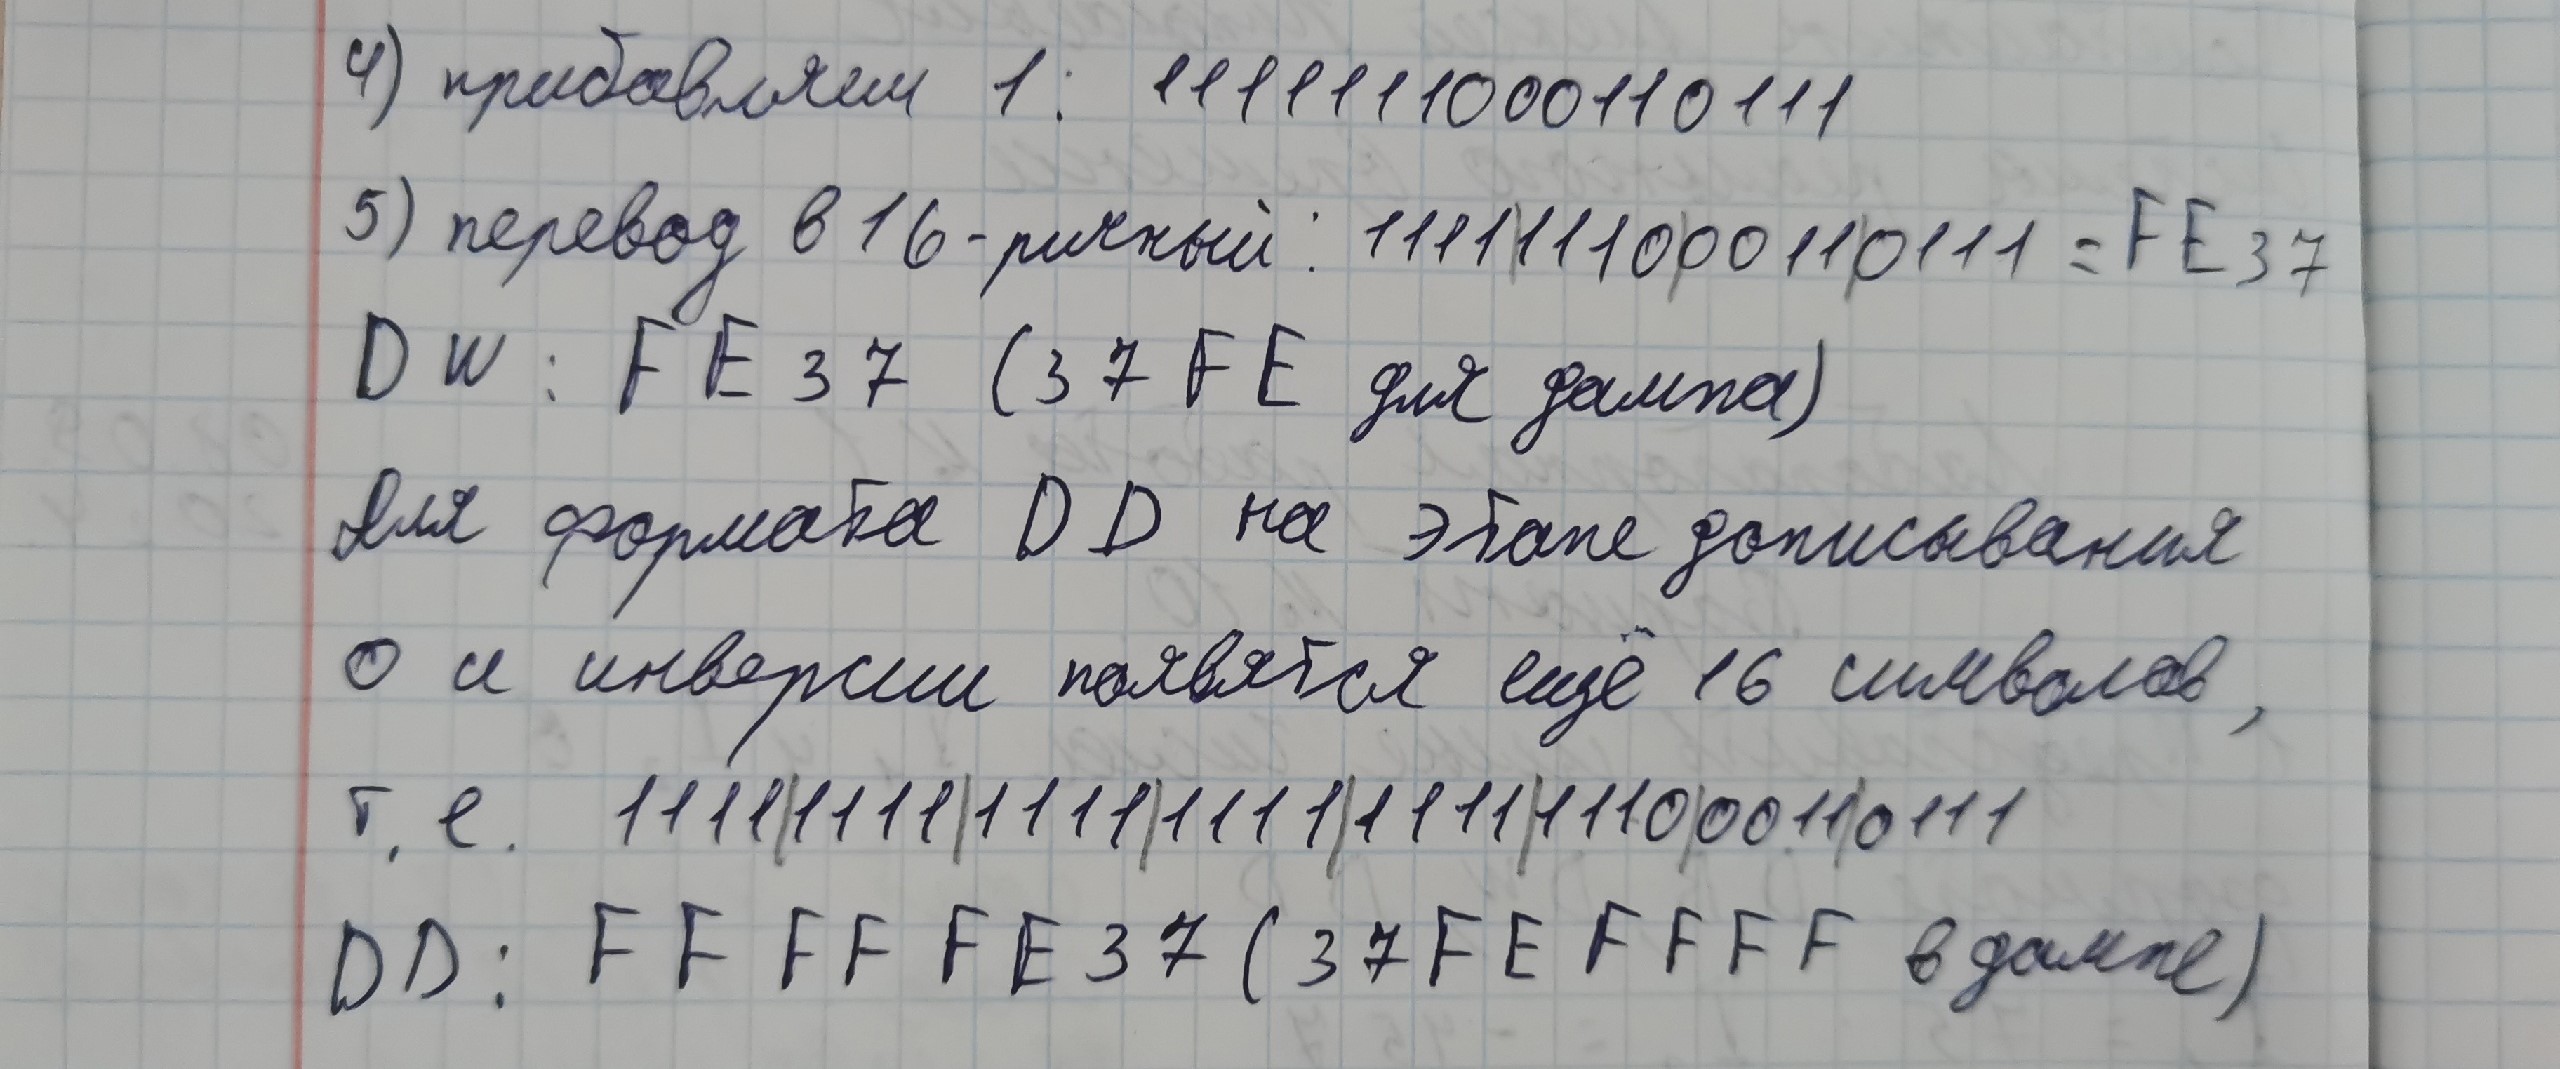 4) прибавляем 1: 1111111000110111
5) перевод в 16-ричный: 1111|1110|0011|0111 = FE37
DW: FE37 (37FE для дампа)
Для формата DD на этапе дописывания
0 и инверсии появятся ещё 16 символов,
т.е. 1111|1111|1111|1111|1111|1110|0011|0111
DD: FFFFFE37 (37FEFFFF в дампе)